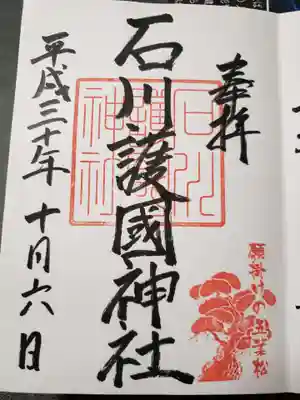 奉拝
石川護國神社
平成三十年 十月六日
石川護國神社
願掛けの五葉松